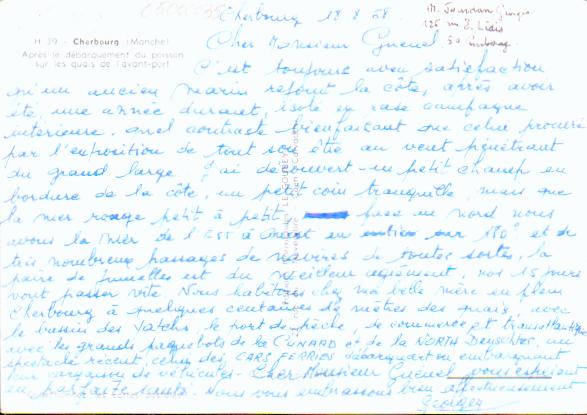 Cherbourg 18 8 58.
M. Jourdan Georges
50 Cherbourg
H 39 - Cherbourg (Manche)
Après le débarquement du poisson
sur les quais de l'avant-port
Cher Monsieur Gueuel
C'est toujours avec satisfaction
qu'un ancien marin rejoint la côte, après avoir
été, une année durant, isolé en rase campagne
intérieure. Quel contraste bienfaisant que celui procuré
par l'exposition de tout son être au vent piquetant
du grand large. J'ai découvert un petit champ en
bordure de la côte, un petit coin tranquille, mais que
la mer ronge petit à petit, face au nord nous
avons la mer de l'Est à Ouest en entier sur 180° et de
très nombreux passages de navires de toutes sortes, la
paire de jumelles est du meilleur agrément, nos 15 jours
vont passer vite. Nous habitons chez ma belle mère en plein
Cherbourg à quelques centaines de mètres des quais, avec
le bassin des Yatchs, le port de pêche, de commerce et transatlantique
avec les grands paquebots de la CUNARD et de la NORTH Deutscher, un
spectacle récent, celui des CARS FERRIES débarquant ou embarquant
leur cargaison de véhicules - Cher Monsieur Gueuel, vous espérant
en parfaite santé. Nous vous embrassons bien affectueusement
Georges